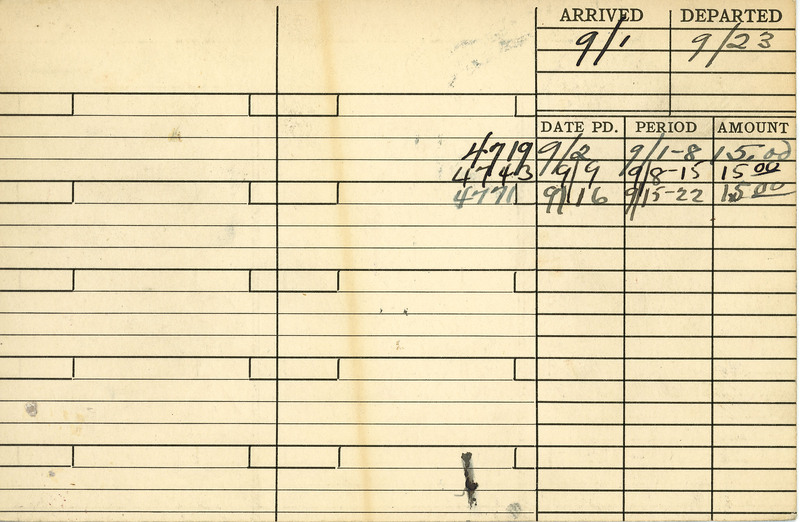 ARRIVED DEPARTED
9/1 9/23
DATE PD. PERIOD AMOUNT
4719 9/2 9/1-8 15.00
4743 9/9 9/8-15 15 00
4771 9/16 9/15-22 15 00